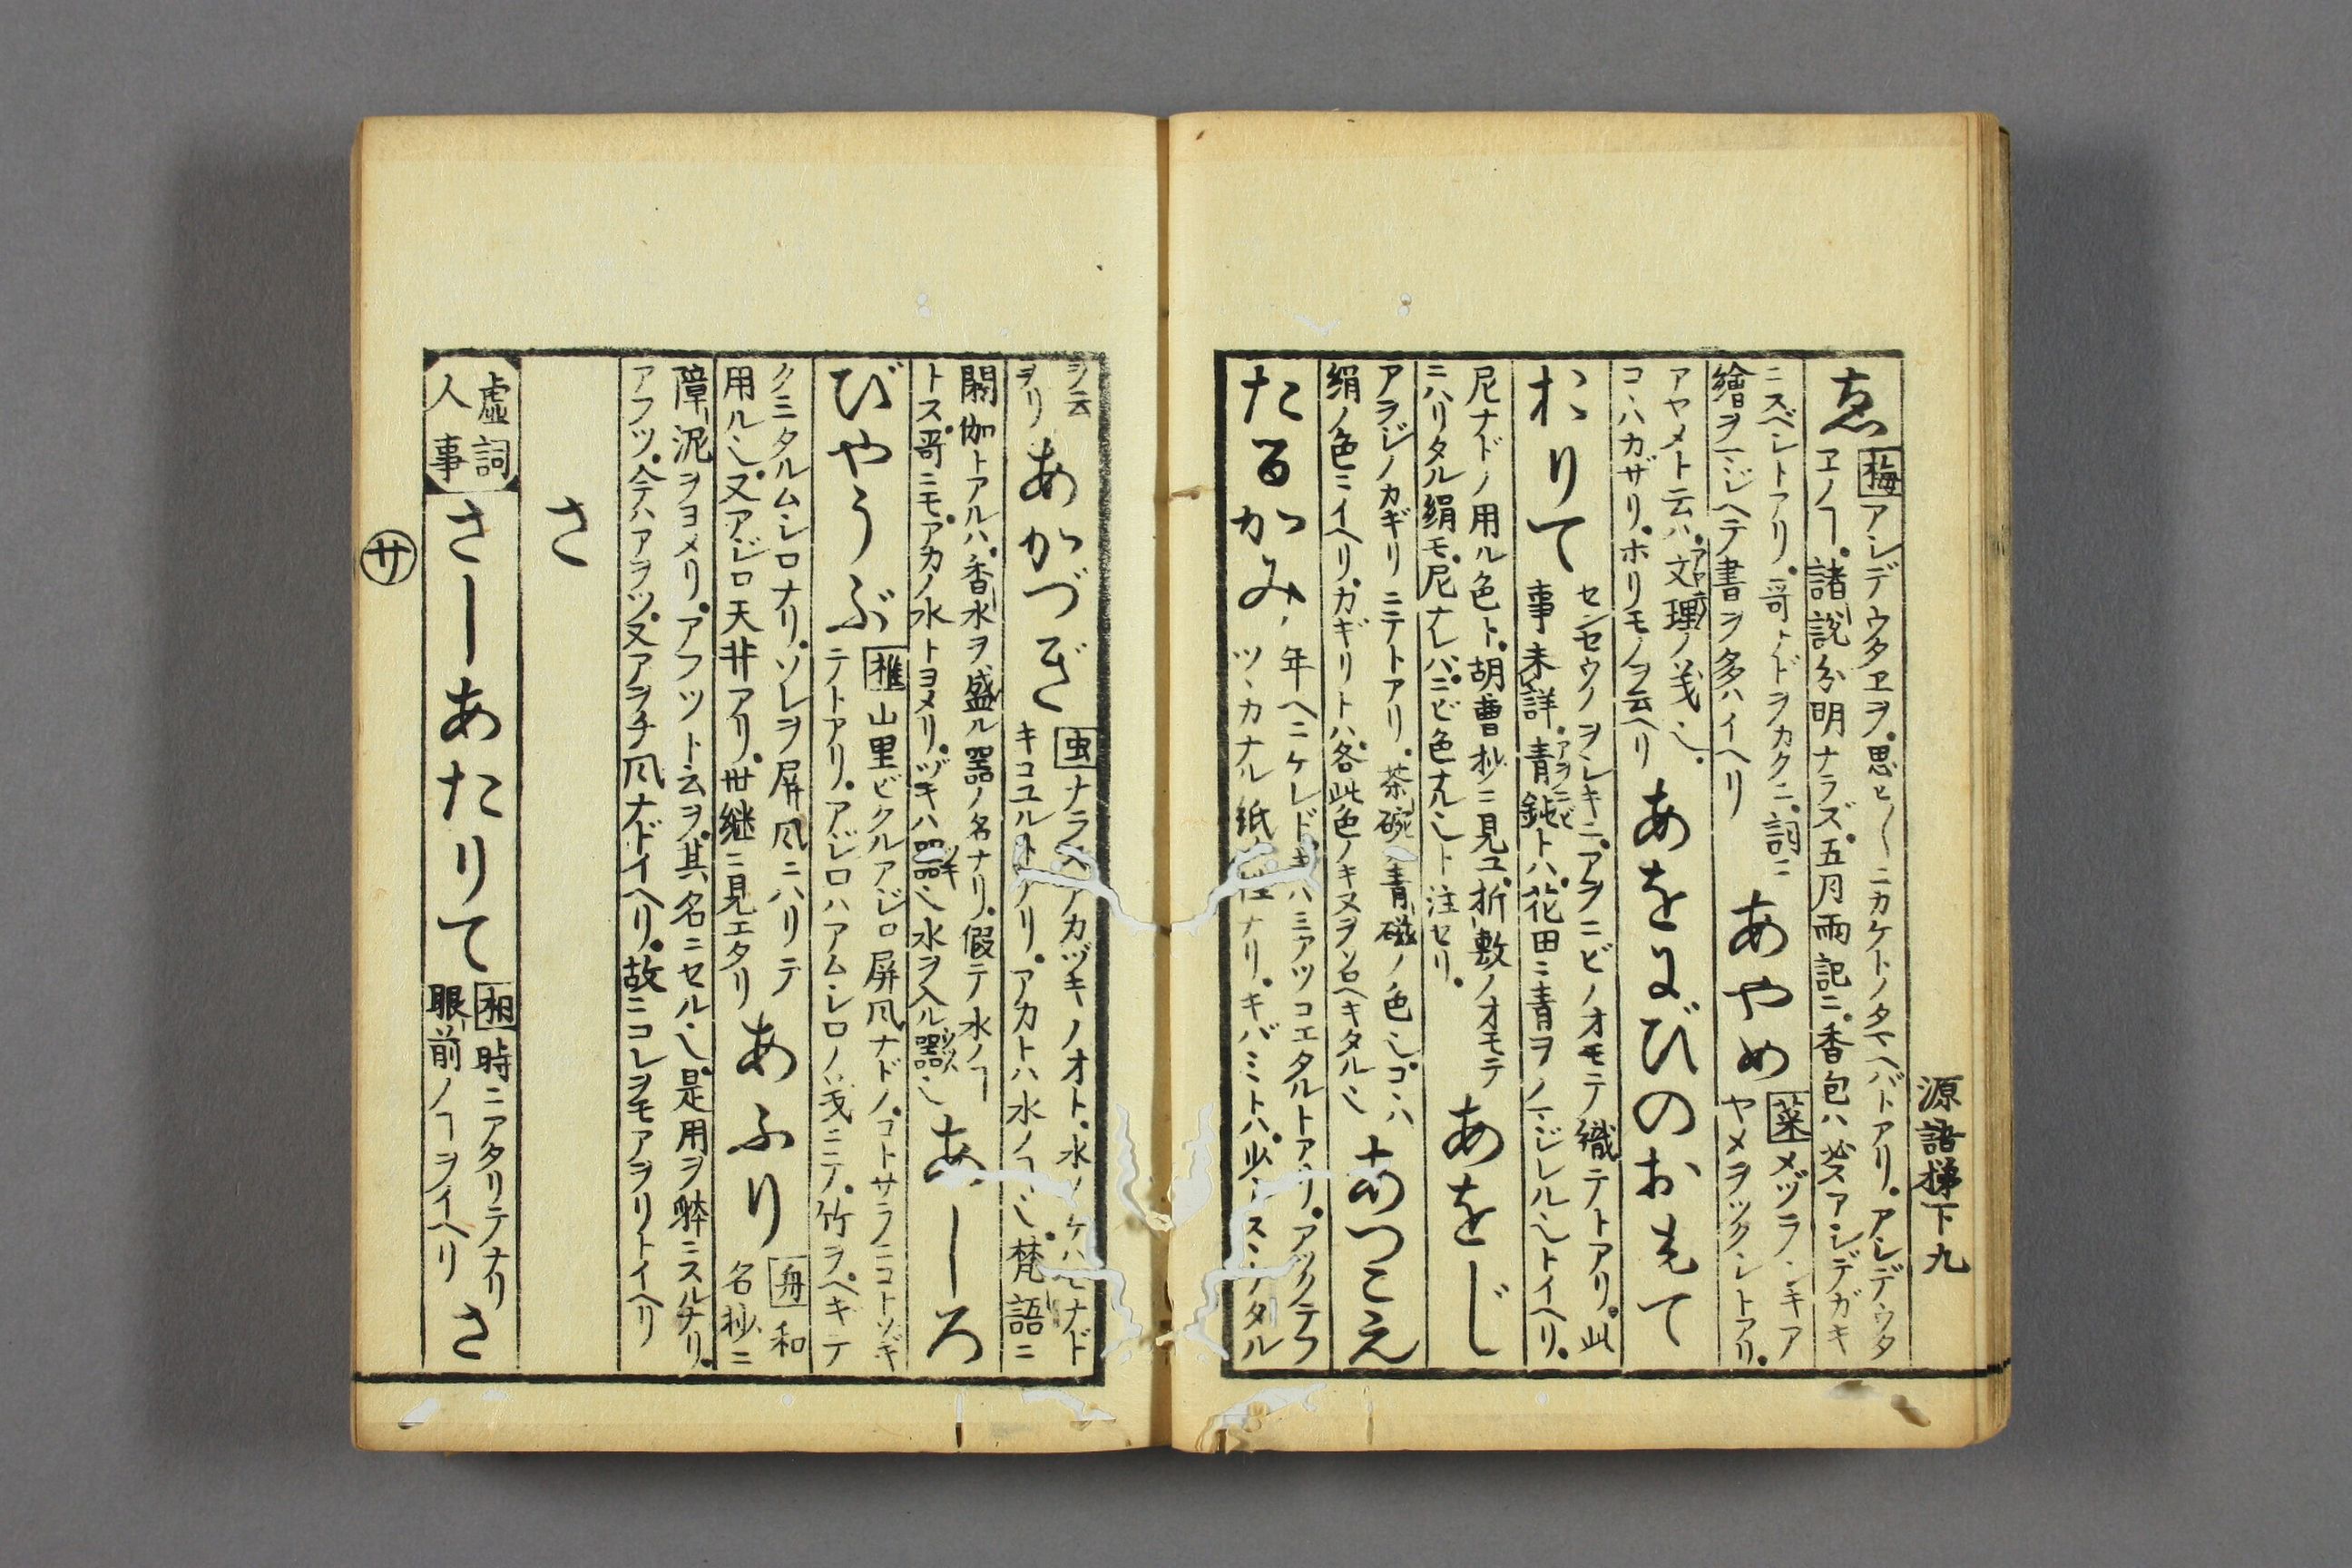 源語梯下九
ゑ
梅アシデウタヱヲ思ヒ〳〵ニカケトノタマヘバトアリ。アシデウタ
ヱノヿ。諸説分明ナラズ。五月雨記ニ。香包ハ必ズアシデガキ
ニスベシトアリ。哥ナドヲカクニ。詞ニ
繪ヲマジヘテ書ヲ多ハイヘリ
あやめ
菜メヅラシキア
ヤメヲツクシトアリ。
アヤメト云ハ。文理ノ義也。
コヽハカザリ。ホリモノヲ云ヘリ
あをにびのおもて
おりて
センセウノヲシキニ。アヲニビノオモテ織テトアリ。此
事未詳。青鈍トハ。花田ニ青ヲマジレル也トイヘリ。
尼ナドノ用ル色ト。胡曹抄ニ見ユ。折敷ノオモテ
ニハリタル絹モ。尼ナレバニビ色ナル也ト注セリ。
あをじ
アヲジノカギリニテトアリ。茶碗青磁ノ色也。コヽハ
絹ノ色ニイヘリ。カギリトハ。各此色ノキヌヲ
あつこえ
たるかみ
年ヘニケレド。キハミアツコエタルトアリ。アツクテフ
ツヽカナル紙ノナリ。キバミトハ。少シスヽケタル
ヲ云
ヲリ
あかづき
虫ナラヘアカヅキノオト。水ノケハヒナド
キコユルトアリ。アカトハ水ノヿ也。梵語ニ
閼伽トアルハ。香水ヲ盛ル器ノ名ナリ。假テ水ノヿ
トス。哥ニモアカノ水トヨメリ。ヅキハ器也水ヲ入ル器也
あじろ
びやうぶ
椎山里ビタルアジロ屏風ナドノ。コトサラニコトソギ
テトアリ。アジロハアムシロノ義ニテ。竹ヲヘギテ
クミタルムシロナリ。ソレヲ屏風ニハリテ
用ル也。又アジロ天井アリ。世継ニ見エタリ
あふり
舟和
名抄ニ
障泥ヲヨメリ。アフツト云ヲ。其名ニセル也。是用ヲ躰ニスルナリ。
アフツ。今ハアヲツ。又アヲチ風ナドイヘリ。故ニコレヲモアヲリトイヘリ
さ
虚詞
人事
さしあたりて
相時ニアタリテナリ
眼前ノヿヲイヘリ
さ
サ